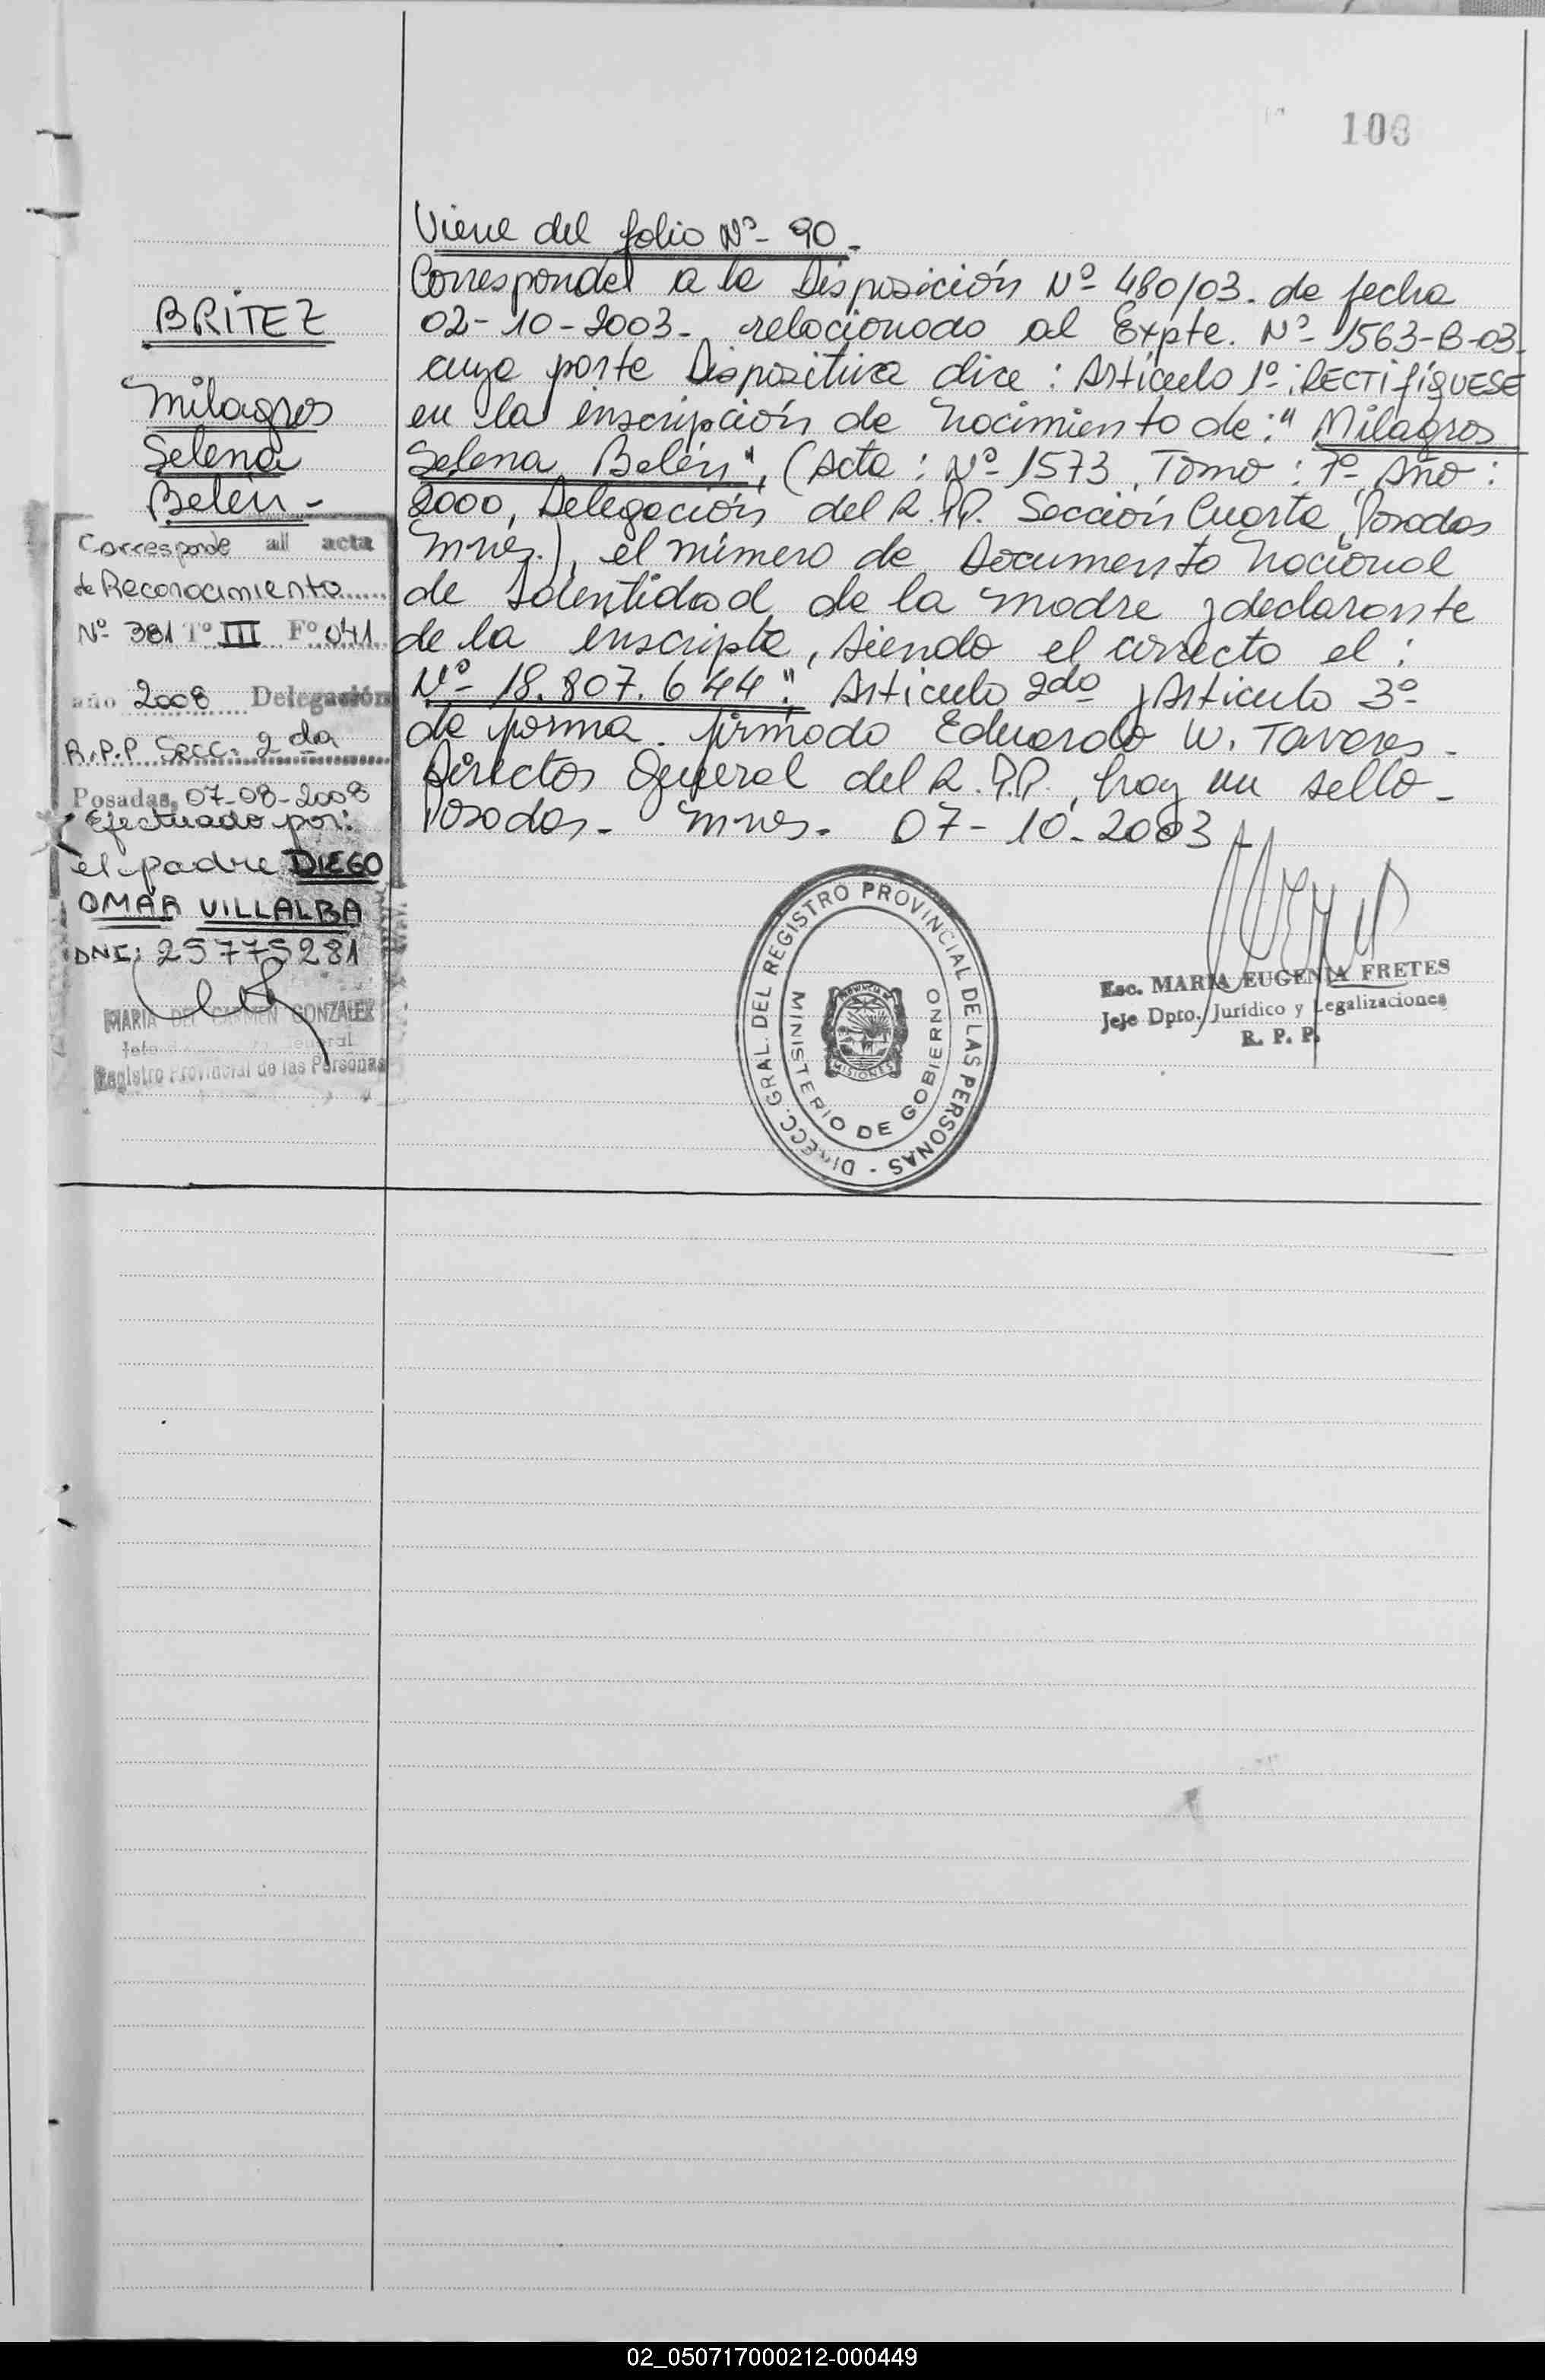 100
BRITEZ
Milagros
Selena
Belén -
Viene del folio Nº- 90 -
Corresponde a la Disposición Nº 480/03. de fecha
02-10-2003- relacionado al Expte. Nº- 1563-B-03.
cuya parte Dispositiva dice: Artículo 1º: RECTIFÍQUESE
en la inscripción de nacimiento de: "Milagros
Selena Belén", (Acta: Nº- 1573, Tomo: 7º, Año:
2000, Delegación del R.P.P. Sección Cuarta, Posadas
Mnes.), el número de Documento Nacional
de Identidad de la madre y declarante
de la inscripta, siendo el correcto el:
Nº- 18.807.644". Artículo 2do y Artículo 3º-
de forma. firmado Eduardo W. Tavares -
Director General del R.P.P., hay un sello -
Posadas - Mnes - 07-10-2003
Corresponde all acta
de Reconocimiento
Nº 381 Tº III Fº 041
año 2008 Delegación
R.P.P Secc. 2da
Posadas, 07-08-2008
Efectuado por:
el padre DIEGO
OMAR VILLALBA
DNI: 25775281
MARIA DEL CARMEN GONZALEZ
Registro Provincial de las Personas
DIRECC. GRAL. DEL REGISTRO PROVINCIAL DE LAS PERSONAS -
MINISTERIO DE GOBIERNO
MISIONES
Esc. MARIA EUGENIA FRETES
Jefe Dpto. Jurídico y Legalizaciones
R. P. P.
02_050717000212-000449